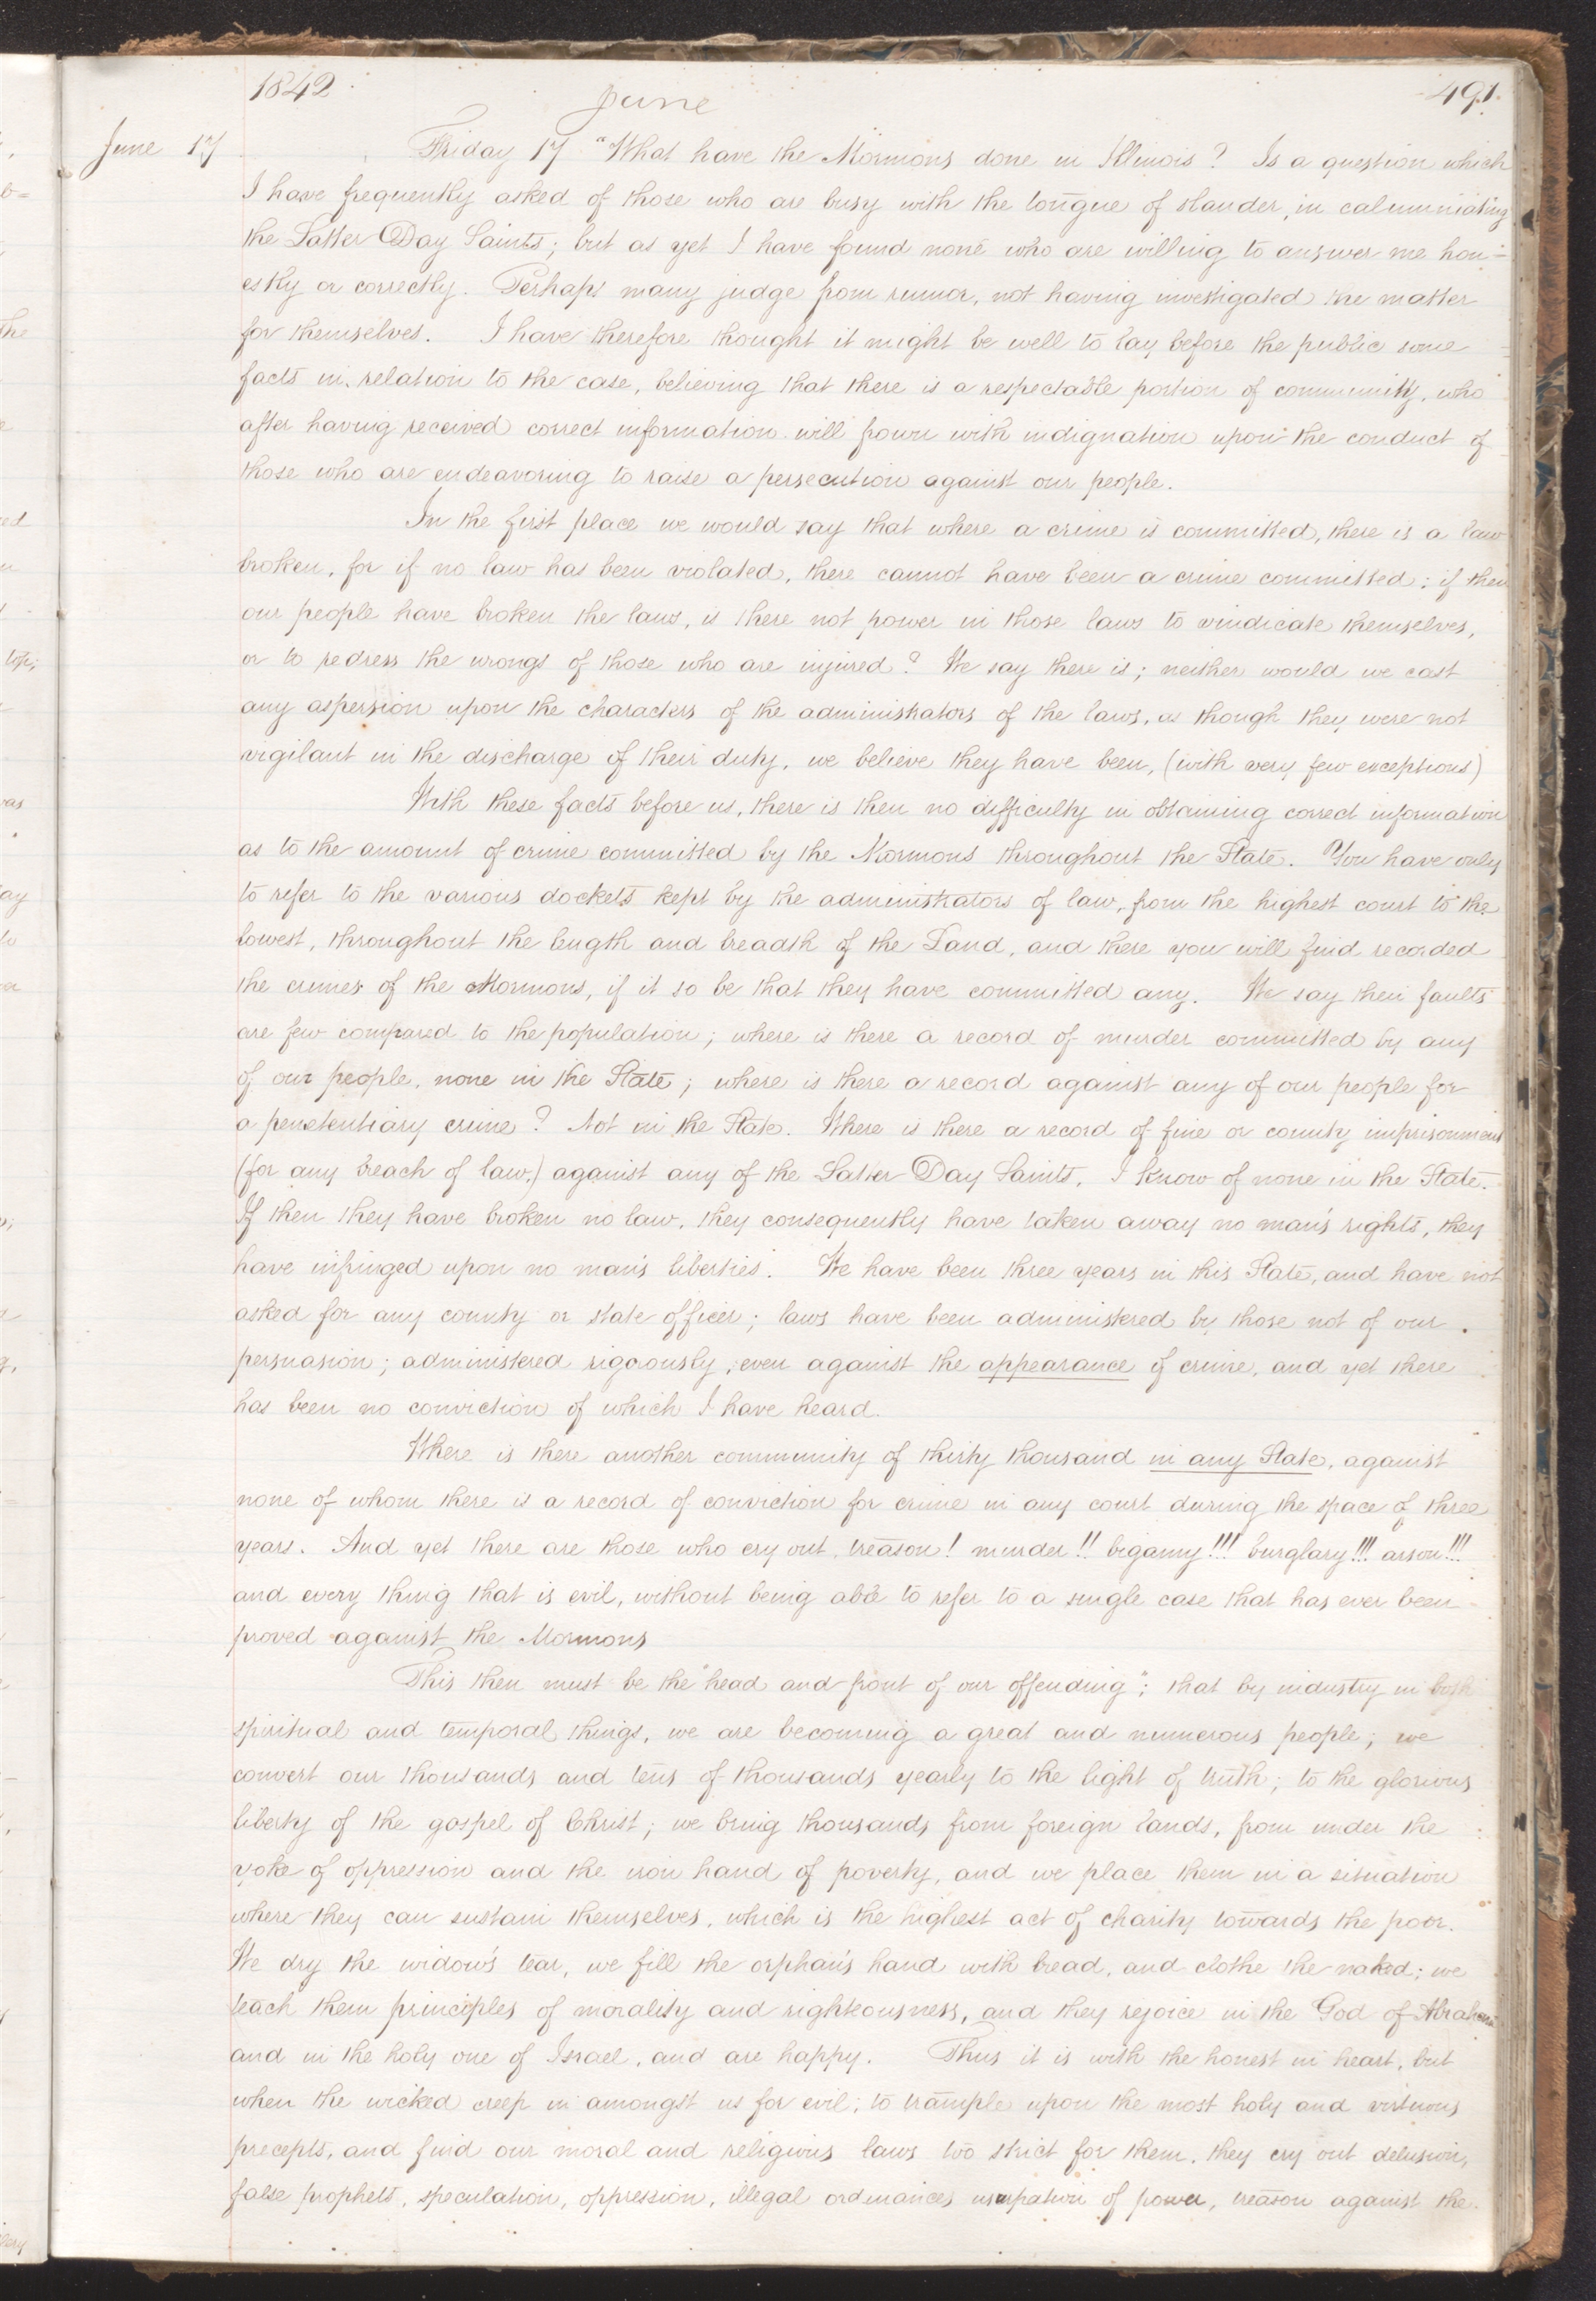 1842
June
491.
June 17
Friday 17 "What have the Mormons done in Illinois? Is a question which
I have frequently asked of those who are busy with the tongue of slander, in calumniating
the Latter Day Saints; but as yet I have found none who are willing to answer me hon=
estly or correctly. Perhaps many judge from rumor, not having investigated the matter
for themselves. I have therefore thought it might be well to lay before the public some
facts in relation to the case, believing that there is a respectable portion of community, who
after having received correct information will frown with indignation upon the conduct of
those who are endeavoring to raise a persecution against our people.
In the first place we would say that where a crime is committed, there is a law
broken, for if no law has been violated, there cannot have been a crime committed; if then
our people have broken the laws, is there not power in those laws to vindicate themselves,
or to redress the wrongs of those who are injured? We say there is; neither would we cast
any aspersion upon the characters of the administrators of the laws, as though they were not
vigilant in the discharge of their duty, we believe they have been, (with very few exceptions)
With these facts before us, there is then no difficulty in obtaining correct information
as to the amount of crime committed by the Mormons throughout the State. You have only
to refer to the various dockets kept by the administrators of law, from the highest court to the
lowest, throughout the length and breadth of the Land, and there you will find recorded
the crimes of the Mormons, if it so be that they have committed any. We say their faults
are few compared to the population; where is there a record of murder committed by any
of our people, none in the State; where is there a record against any of our people for
a penetentiary crime? Not in the State. Where is there a record of fine or county imprisonment
(for any breach of law,) against any of the Latter Day Saints, I know of none in the State.
If then they have broken no law, they consequently have taken away no man's rights, they
have infringed upon no man's liberties. We have been three years in this State, and have not
asked for any county or state officer; laws have been administered by those not of our
persuasion; administered rigorously, even against the appearance of crime, and yet there
has been no conviction of which I have heard.
Where is there another community of thirty thousand in any State, against
none of whom there is a record of conviction for crime in any court during the space of three
years. And yet there are those who cry out, treason! murder!! bigamy!!! burglary!!! arson!!!
and every thing that is evil, without being able to refer to a single case that has ever been
proved against the Mormons
This then must be the "head and front of our offending"; that by industry in both
spiritual and temporal things, we are becoming a great and numerous people; we
convert our thousands and tens of thousands yearly to the light of truth; to the glorious
liberty of the gospel of Christ; we bring thousands from foreign lands, from under the
yoke of oppression and the iron hand of poverty, and we place them in a situation
where they can sustain themselves, which is the highest act of charity towards the poor.
We dry the widow's tear, we fill the orphan's hand with bread, and clothe the naked; we
teach them principles of morality and righteousness, and they rejoice in the God of Abraham
and in the holy one of Israel, and are happy. Thus it is with the honest in heart, but
when the wicked creep in amongst us for evil; to trample upon the most holy and virtuous
precepts, and find our moral and religious laws too strict for them, they cry out delusion,
false prophets, speculation, oppression, illegal ordinances, usurpation of power, treason against the